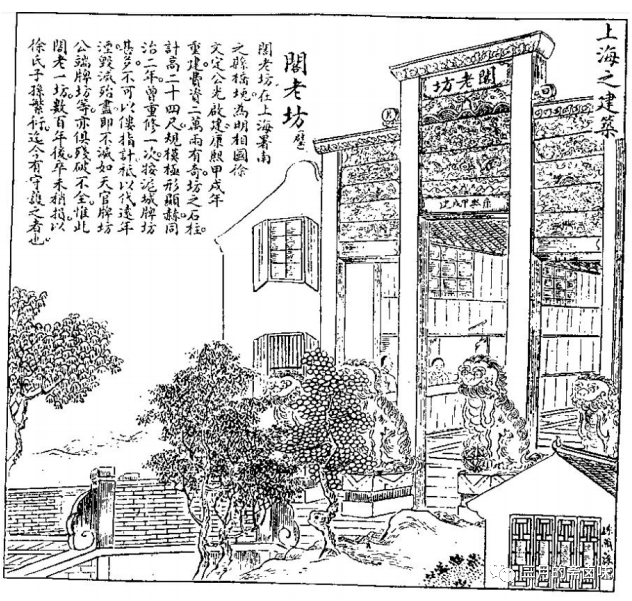 上海之建築
閣老坊
閣老坊在上海署南
之縣橋堍為明相國徐
文定公光啟建康熙甲戌年
重建費資二萬兩有奇坊之石柱
計高二十四尺規模極形顯赫同
治二年曾重修一次按滬城牌坊
甚多不可以僂指計祗以代遠年
湮毀滅殆盡即不滅如天官牌坊
公端牌坊等亦俱殘破不全惟此
閣老一坊數百年後卒未稍損以
徐氏子孫繁衍迄今有守護之者也
閣老坊